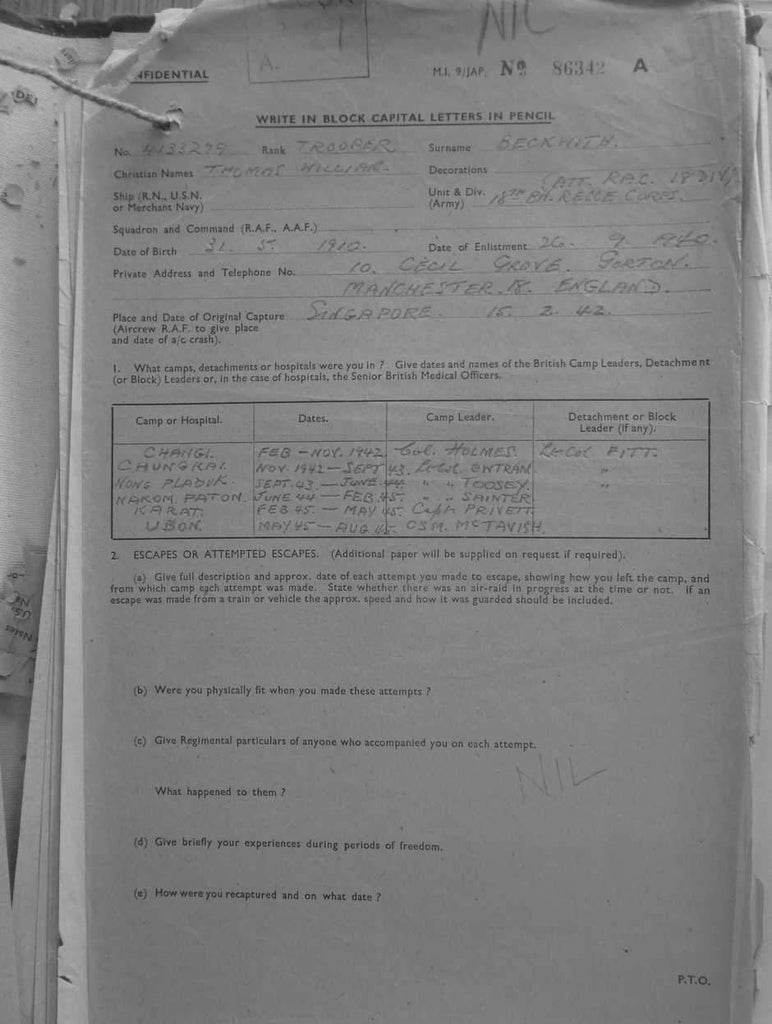 NIL
A.
NFIDENTIAL
M.I. 9/JAP. No 86342 A
WRITE IN BLOCK CAPITAL LETTERS IN PENCIL
No. 4133279 Rank TROOPER Surname BECKWITH.
Christian Names THOMAS WILLIAM. Decorations
(ATT. R.A.C. 18 DIV)
Ship (R.N., U.S.N. or Merchant Navy) Unit & Div. (Army) 18TH BN. RECCE CORPS.
Squadron and Command (R.A.F., A.A.F.)
Date of Birth 31. 1910. Date of Enlistment 26. 9. 1940.
Private Address and Telephone No. 10. CECIL GROVE. GORTON.
MANCHESTER. 18. ENGLAND.
Place and Date of Original Capture SINGAPORE. 15. 2. 42.
(Aircrew R.A.F. to give place
and date of a/c crash).
1. What camps, detachments or hospitals were you in ? Give dates and names of the British Camp Leaders, Detachment
(or Block) Leaders or, in the case of hospitals, the Senior British Medical Officers.
Camp or Hospital. Dates. Camp Leader. Detachment or Block Leader (if any).
CHANGI. FEB - NOV. 1942. Col. HOLMES. Lt-Col PITT.
CHUNGKAI. NOV. 1942 - SEPT 43. Lt-Col OWTRAM "
NONG PLADUK. SEPT. 43 - JUNE. 44. " " TOOSEY. "
NAKOM. PATON. JUNE 44 - FEB 45. " " SAINTER
KARAT. FEB 45. - MAY 45. Capt PRIVETT
UBON. MAY 45 - AUG 45. CSM. McTAVISH.
2. ESCAPES OR ATTEMPTED ESCAPES. (Additional paper will be supplied on request if required).
(a) Give full description and approx. date of each attempt you made to escape, showing how you left the camp, and
from which camp each attempt was made. State whether there was an air-raid in progress at the time or not. If an
escape was made from a train or vehicle the approx. speed and how it was guarded should be included.
(b) Were you physically fit when you made these attempts ?
(c) Give Regimental particulars of anyone who accompanied you on each attempt.
NIL
What happened to them ?
(d) Give briefly your experiences during periods of freedom.
(e) How were you recaptured and on what date ?
P.T.O.